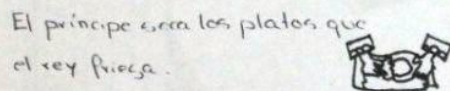 El príncipe seca los platos que
el rey friega.